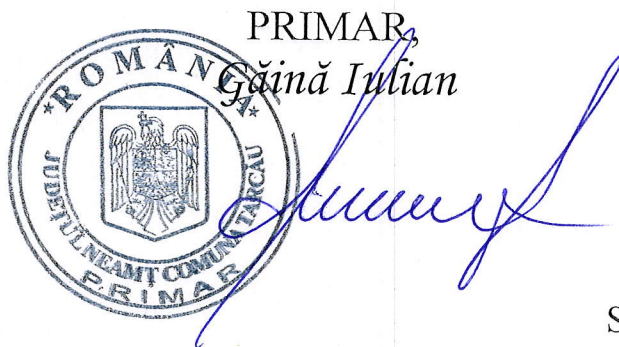 PRIMAR,
Găină Iulian
*ROMÂNIA*
JUDEȚUL NEAMȚ COMUNA TARCĂU
PRIMAR
S